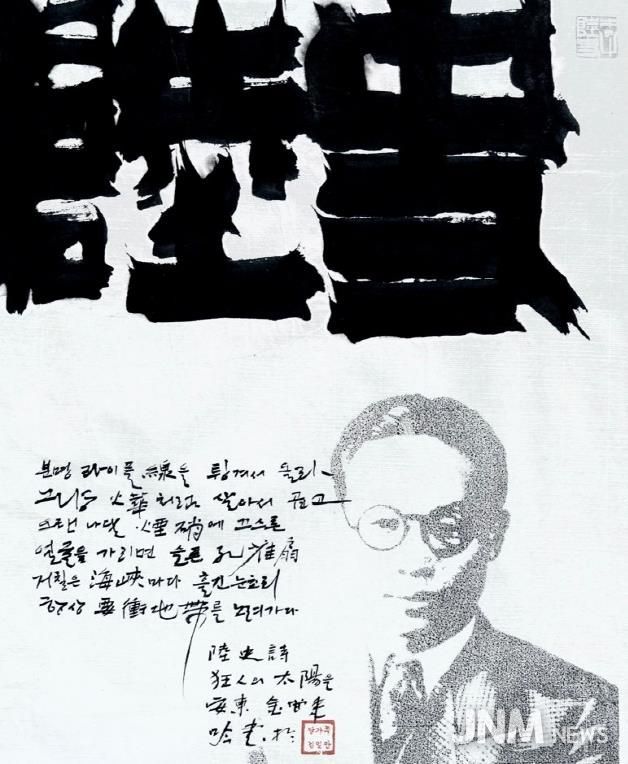 분명 라이플 線을 튕겨서 올라
그냥 火華처럼 살아서 곱고
오랜 나달 煙硝에 끄스른
얼굴을 가리면 슬픈 孔雀扇
거칠은 海峽마다 흘긴 눈초리
항상 要衝地帶를 노려가다
陸史詩
狂人의 太陽을
安東 金
JNM NEWS